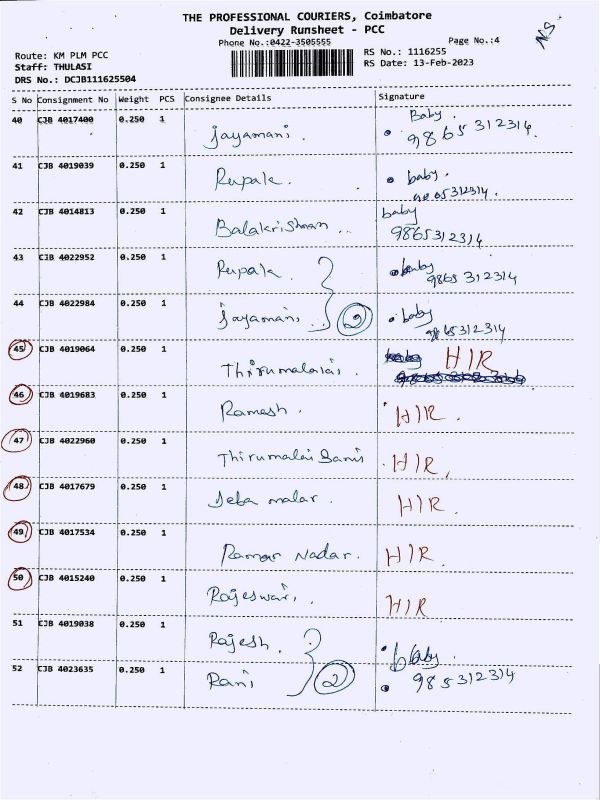 THE PROFESSIONAL COURIERS, Coimbatore
Delivery Runsheet - PCC
Phone No.:0422-3505555 Page No.:4
Route: KM PLM PCC RS No.: 1116255
Staff: THULASI RS Date: 13-Feb-2023
DRS No.: DCJB111625504
S No Consignment No Weight PCS Consignee Details Signature
40 CJB 4017400 0.250 1 Jayamani. Baby.
9865312314.
41 CJB 4019039 0.250 1 Rupak. baby.
9865312314.
42 CJB 4014813 0.250 1 Balakrishnan .. baby
9865312314
43 CJB 4022952 0.250 1 Rupak baby
9865 312314
44 CJB 4022984 0.250 1 Jayamani. 2 baby
9865312314
45 CJB 4019064 0.250 1 Thirumalai. HIR
46 CJB 4019683 0.250 1 Ramesh. HIR.
47 CJB 4022960 0.250 1 Thirumalai Sami HIR.
48 CJB 4017679 0.250 1 Jeba malar. HIR.
49 CJB 4017534 0.250 1 Raman Nadar. HIR.
50 CJB 4015240 0.250 1 Rajeswari. HIR
51 CJB 4019038 0.250 1 Rajesh. baby.
52 CJB 4023635 0.250 1 Rani 2 985312314